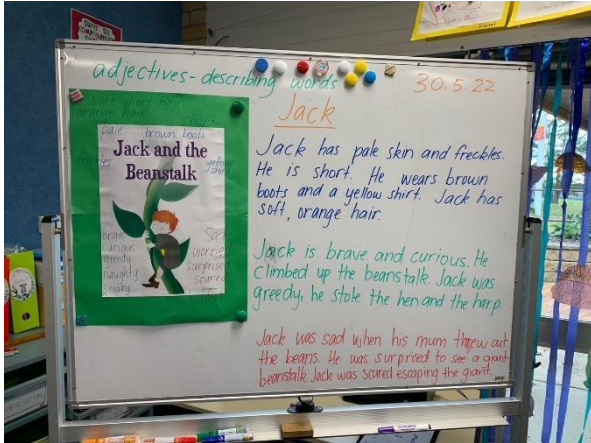 adjectives - describing words
30.5.22
soft short hair
orange hair
pale
brown boots
freckles
yellow
shirt
Jack and the
Beanstalk
brave
curious
greedy
naughty
sneaky
Sad
worried
surprised
scared
Jack
Jack has pale skin and freckles.
He is short. He wears brown
boots and a yellow shirt. Jack has
soft, orange hair.
Jack is brave and curious. He
climbed up the beanstalk. Jack was
greedy, he stole the hen and the harp.
Jack was sad when his mum threw out
the beans. He was surprised to see a giant
beanstalk. Jack was scared escaping the giant.